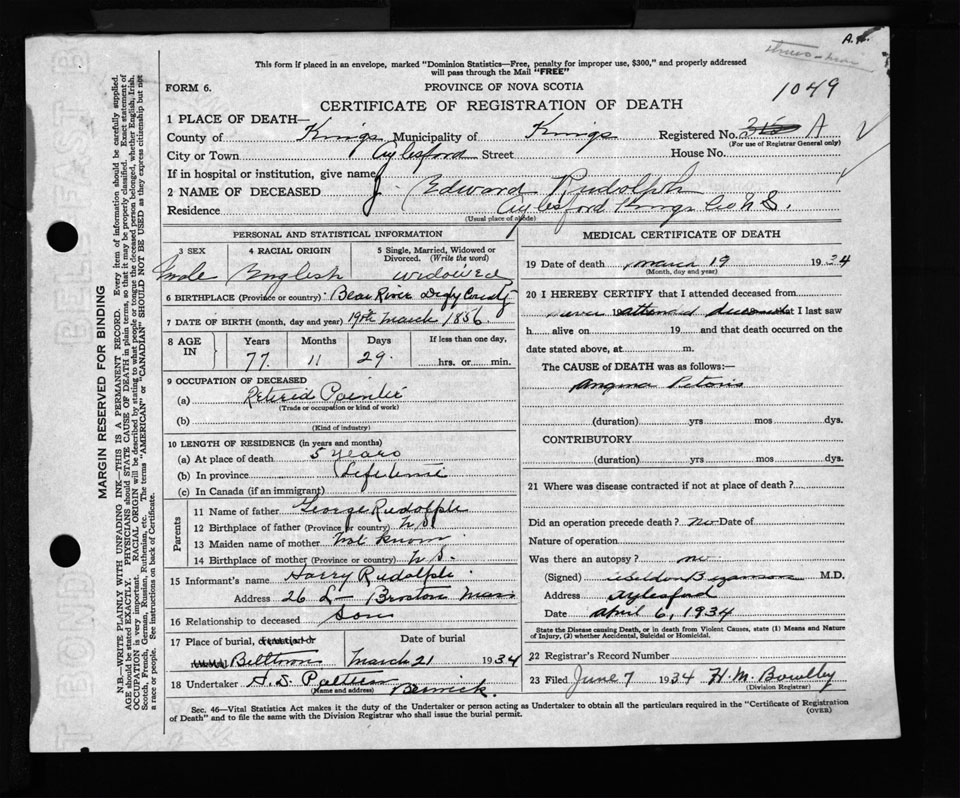 A.
This form if placed in an envelope, marked "Dominion Statistics—Free, penalty for improper use, $300," and properly addressed
will pass through the Mail "FREE"
FORM 6.
PROVINCE OF NOVA SCOTIA
1049
CERTIFICATE OF REGISTRATION OF DEATH
1 PLACE OF DEATH—
County of Kings Municipality of Kings Registered No. A
(For use of Registrar General only)
City or Town Aylesford Street House No.
If in hospital or institution, give name
2 NAME OF DECEASED J. Edward Rudolph
Residence Aylesford Kings Co N.S.
(Usual place of abode)
PERSONAL AND STATISTICAL INFORMATION
3 SEX 4 RACIAL ORIGIN 5 Single, Married, Widowed or
Divorced. (Write the word)
Male English widowed
6 BIRTHPLACE (Province or country) Bear River Digby County
7 DATE OF BIRTH (month, day and year) 19th March 1856
8 AGE IN Years Months Days If less than one day,
77 11 29 hrs. or min.
9 OCCUPATION OF DECEASED
(a) Retired
(Trade or occupation or kind of work)
(b)
(Kind of industry)
10 LENGTH OF RESIDENCE (in years and months)
(a) At place of death 5 years
(b) In province Lifetime
(c) In Canada (if an immigrant)
Parents
11 Name of father George Rudolph
12 Birthplace of father (Province or country) N S
13 Maiden name of mother not known
14 Birthplace of mother (Province or country) N S.
15 Informant's name Harry Rudolph
Address 26 Mass
16 Relationship to deceased Son
17 Place of burial, cremation or removal Date of burial
March 21 1934
18 Undertaker A. S. Berwick.
(Name and address)
MEDICAL CERTIFICATE OF DEATH
19 Date of death March 19 1934
(Month, day and year)
20 I HEREBY CERTIFY that I attended deceased from
never attended deceased that I last saw
h alive on 19 and that death occurred on the
date stated above, at m.
The CAUSE of DEATH was as follows:—
Angina Pectoris
(duration) yrs mos dys.
CONTRIBUTORY
(duration) yrs mos dys.
21 Where was disease contracted if not at place of death?
Did an operation precede death? No Date of
Nature of operation
Was there an autopsy? no
(Signed) M.D.
Address Aylesford
Date April 6, 1934
State the Disease causing Death, or in death from Violent Causes, state (1) Means and Nature
of Injury, (2) whether Accidental, Suicidal or Homicidal.
22 Registrar's Record Number
23 Filed June 7 1934 H. M. Bowlby
(Division Registrar)
Sec. 46—Vital Statistics Act makes it the duty of the Undertaker or person acting as Undertaker to obtain all the particulars required in the "Certificate of Registration
of Death" and to file the same with the Division Registrar who shall issue the burial permit.
(OVER)
MARGIN RESERVED FOR BINDING
N.B.—WRITE PLAINLY WITH UNFADING INK—THIS IS A PERMANENT RECORD. Every item of information should be carefully supplied.
AGE should be stated EXACTLY. PHYSICIANS should STATE CAUSE OF DEATH in plain terms, so that it may be properly classified. Exact statement of
OCCUPATION is very important. RACIAL ORIGIN will be described by stating to what people or tongue the deceased person belonged, whether English, Irish,
Scotch, French, German, Russian, Ruthenian, etc. The terms "AMERICAN" or "CANADIAN" SHOULD NOT BE USED as they express citizenship but not
a race or people. See instructions on back of Certificate.